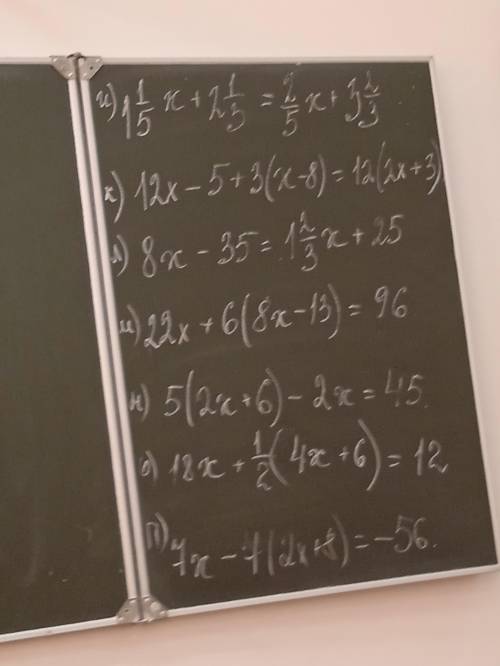 и) 1 1/5 x + 2 1/5 = 2/5 x + 3 2/3
к) 12x - 5 + 3(x - 8) = 12(2x + 3)
л) 8x - 35 = 1 2/3 x + 25
м) 22x + 6(8x - 13) = 96
н) 5(2x + 6) - 2x = 45.
о) 18x + 1/2 (4x + 6) = 12
п) 7x - 7(2x + 8) = -56.